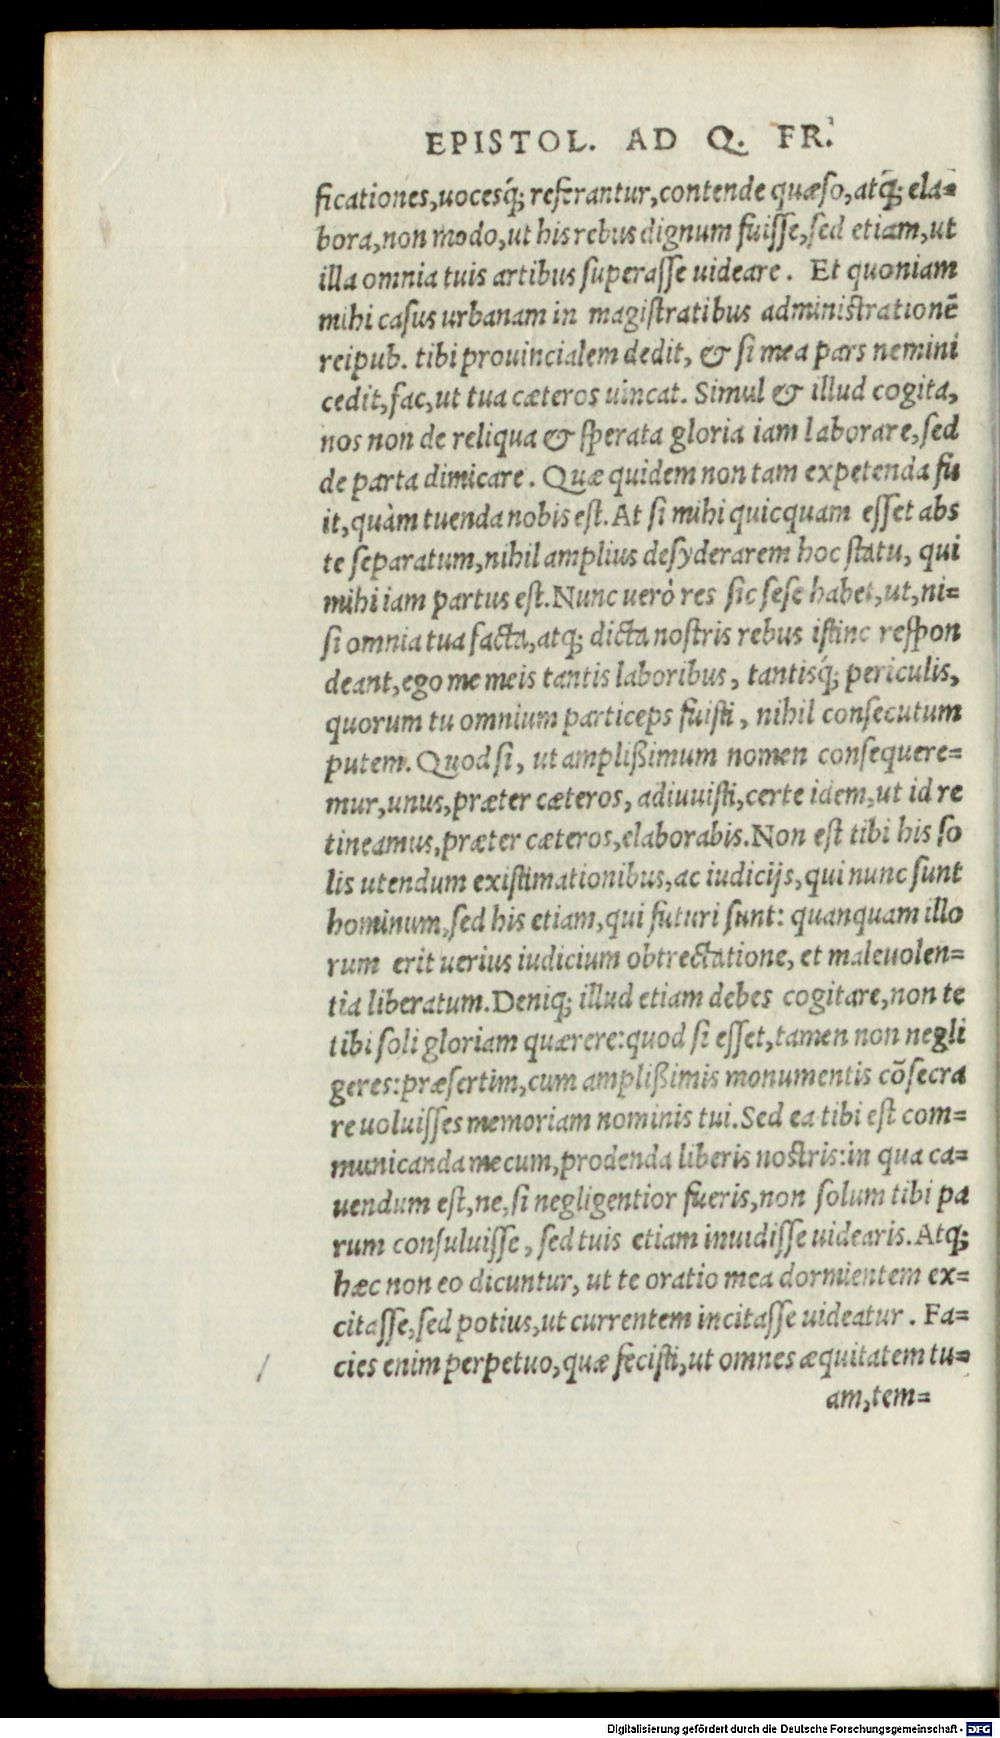 EPISTOL. AD Q. FR.
ficationes,uocesq́; referantur,contende quæso,atq́; ela=
bora,non modo,ut his rebus dignum fuisse,sed etiam,ut
illa omnia tuis artibus superasse uideare. Et quoniam
mihi casus urbanam in magistratibus administrationē
reipub. tibi prouincialem dedit, & si mea pars nemini
cedit,fac,ut tua cæteros uincat. Simul & illud cogita,
nos non de reliqua & sperata gloria iam laborare,sed
de parta dimicare. Quæ quidem non tam expetenda fu
it,quàm tuenda nobis est. At si mihi quicquam esset abs
te separatum,nihil amplius desyderarem hoc statu, qui
mihi iam partus est. Nunc uerò res sic sese habet,ut,ni=
si omnia tua facta,atq; dicta nostris rebus istinc respon
deant,ego me meis tantis laboribus, tantisq́; periculis,
quorum tu omnium particeps fuisti, nihil consecutum
putem. Quod si, ut amplißimum nomen consequere=
mur,unus,præter cæteros, adiuuisti,certe idem,ut id re
tineamus,præter cæteros,elaborabis. Non est tibi his so
lis utendum existimationibus,ac iudicijs,qui nunc sunt
hominum,sed his etiam,qui futuri sunt: quanquam illo
rum erit uerius iudicium obtrectatione, et maleuolen=
tia liberatum. Deniq; illud etiam debes cogitare,non te
tibi soli gloriam quærere:quod si esset,tamen non negli
geres:præsertim,cum amplißimis monumentis cōsecra
re uoluisses memoriam nominis tui. Sed ea tibi est com=
municanda mecum,prodenda liberis nostris:in qua ca=
uendum est,ne,si negligentior fueris,non solum tibi pa
rum consuluisse, sed tuis etiam inuidisse uidearis. Atq;
hæc non eo dicuntur, ut te oratio mea dormientem ex=
citasse,sed potius,ut currentem incitasse uideatur. Fa=
cies enim perpetuo,quæ fecisti,ut omnes æquitatem tu=
am,tem=
Digitalisierung gefördert durch die Deutsche Forschungsgemeinschaft - DFG